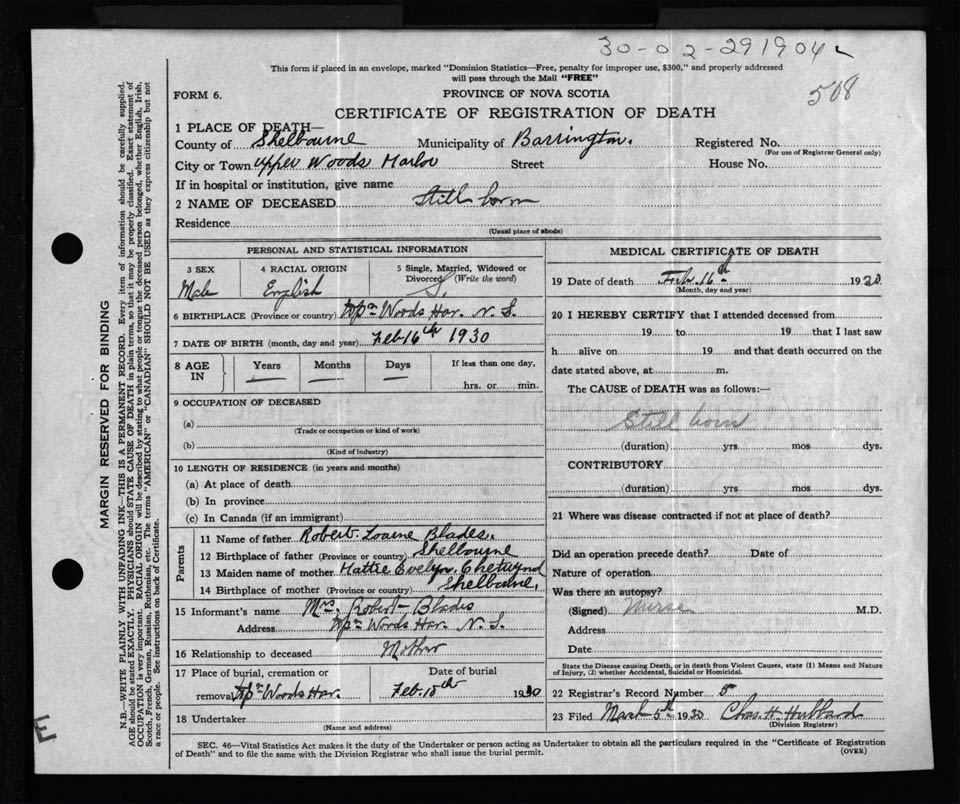 30-02-291904
This form if placed in an envelope, marked "Dominion Statistics—Free, penalty for improper use, $300," and properly addressed
will pass through the Mail "FREE"
508
FORM 6.
PROVINCE OF NOVA SCOTIA
CERTIFICATE OF REGISTRATION OF DEATH
1 PLACE OF DEATH—
County of Shelbourne Municipality of Barrington. Registered No.
(For use of Registrar General only)
City or Town Upper Woods Harbor Street House No.
If in hospital or institution, give name
2 NAME OF DECEASED Still born
Residence
(Usual place of abode)
PERSONAL AND STATISTICAL INFORMATION
3 SEX 4 RACIAL ORIGIN 5 Single, Married, Widowed or
Divorced (Write the word)
Male English S.
6 BIRTHPLACE (Province or country) Upr Woods Har. N. S.
7 DATE OF BIRTH (month, day and year) Feb 16th 1930
8 AGE IN Years Months Days If less than one day,
hrs. or min.
9 OCCUPATION OF DECEASED
(a)
(Trade or occupation or kind of work)
(b)
(Kind of industry)
10 LENGTH OF RESIDENCE (in years and months)
(a) At place of death
(b) In province
(c) In Canada (if an immigrant)
Parents
11 Name of father Robert Lourne Blades.
12 Birthplace of father (Province or country) Shelbourne
13 Maiden name of mother Hattie Evelyn Chetwynd
14 Birthplace of mother (Province or country) Shelburne.
15 Informant's name Mrs. Robert Blades
Address Upr Woods Har. N. S.
16 Relationship to deceased Mother
17 Place of burial, cremation or Date of burial
removal Upr Woods Har. Feb. 18th 1930
18 Undertaker
(Name and address)
MEDICAL CERTIFICATE OF DEATH
19 Date of death Feb. 16th 1930
(Month, day and year)
20 I HEREBY CERTIFY that I attended deceased from
19 to 19 that I last saw
h alive on 19 and that death occurred on the
date stated above, at m.
The CAUSE of DEATH was as follows:—
Still born
(duration) yrs mos dys.
CONTRIBUTORY
(duration) yrs mos dys.
21 Where was disease contracted if not at place of death?
Did an operation precede death? Date of
Nature of operation
Was there an autopsy?
(Signed) Nurse M.D.
Address
Date
State the Disease causing Death, or in death from Violent Causes, state (1) Means and Nature
of Injury, (2) whether Accidental, Suicidal or Homicidal.
22 Registrar's Record Number 5
23 Filed March 5th 1930 Chas. H. Hubbard
(Division Registrar)
SEC. 46—Vital Statistics Act makes it the duty of the Undertaker or person acting as Undertaker to obtain all the particulars required in the "Certificate of Registration
of Death" and to file the same with the Division Registrar who shall issue the burial permit.
(OVER)
MARGIN RESERVED FOR BINDING
N.B.—WRITE PLAINLY WITH UNFADING INK—THIS IS A PERMANENT RECORD. Every item of information should be carefully supplied.
AGE should be stated EXACTLY. PHYSICIANS should STATE CAUSE OF DEATH in plain terms, so that it may be properly classified. Exact statement of
OCCUPATION is very important. RACIAL ORIGIN will be described by stating to what people or tongue the deceased person belonged, whether English, Irish,
Scotch, French, German, Russian, Ruthenian, etc. The terms "AMERICAN" or "CANADIAN" SHOULD NOT BE USED as they express citizenship but not
a race or people. See instructions on back of Certificate.
E